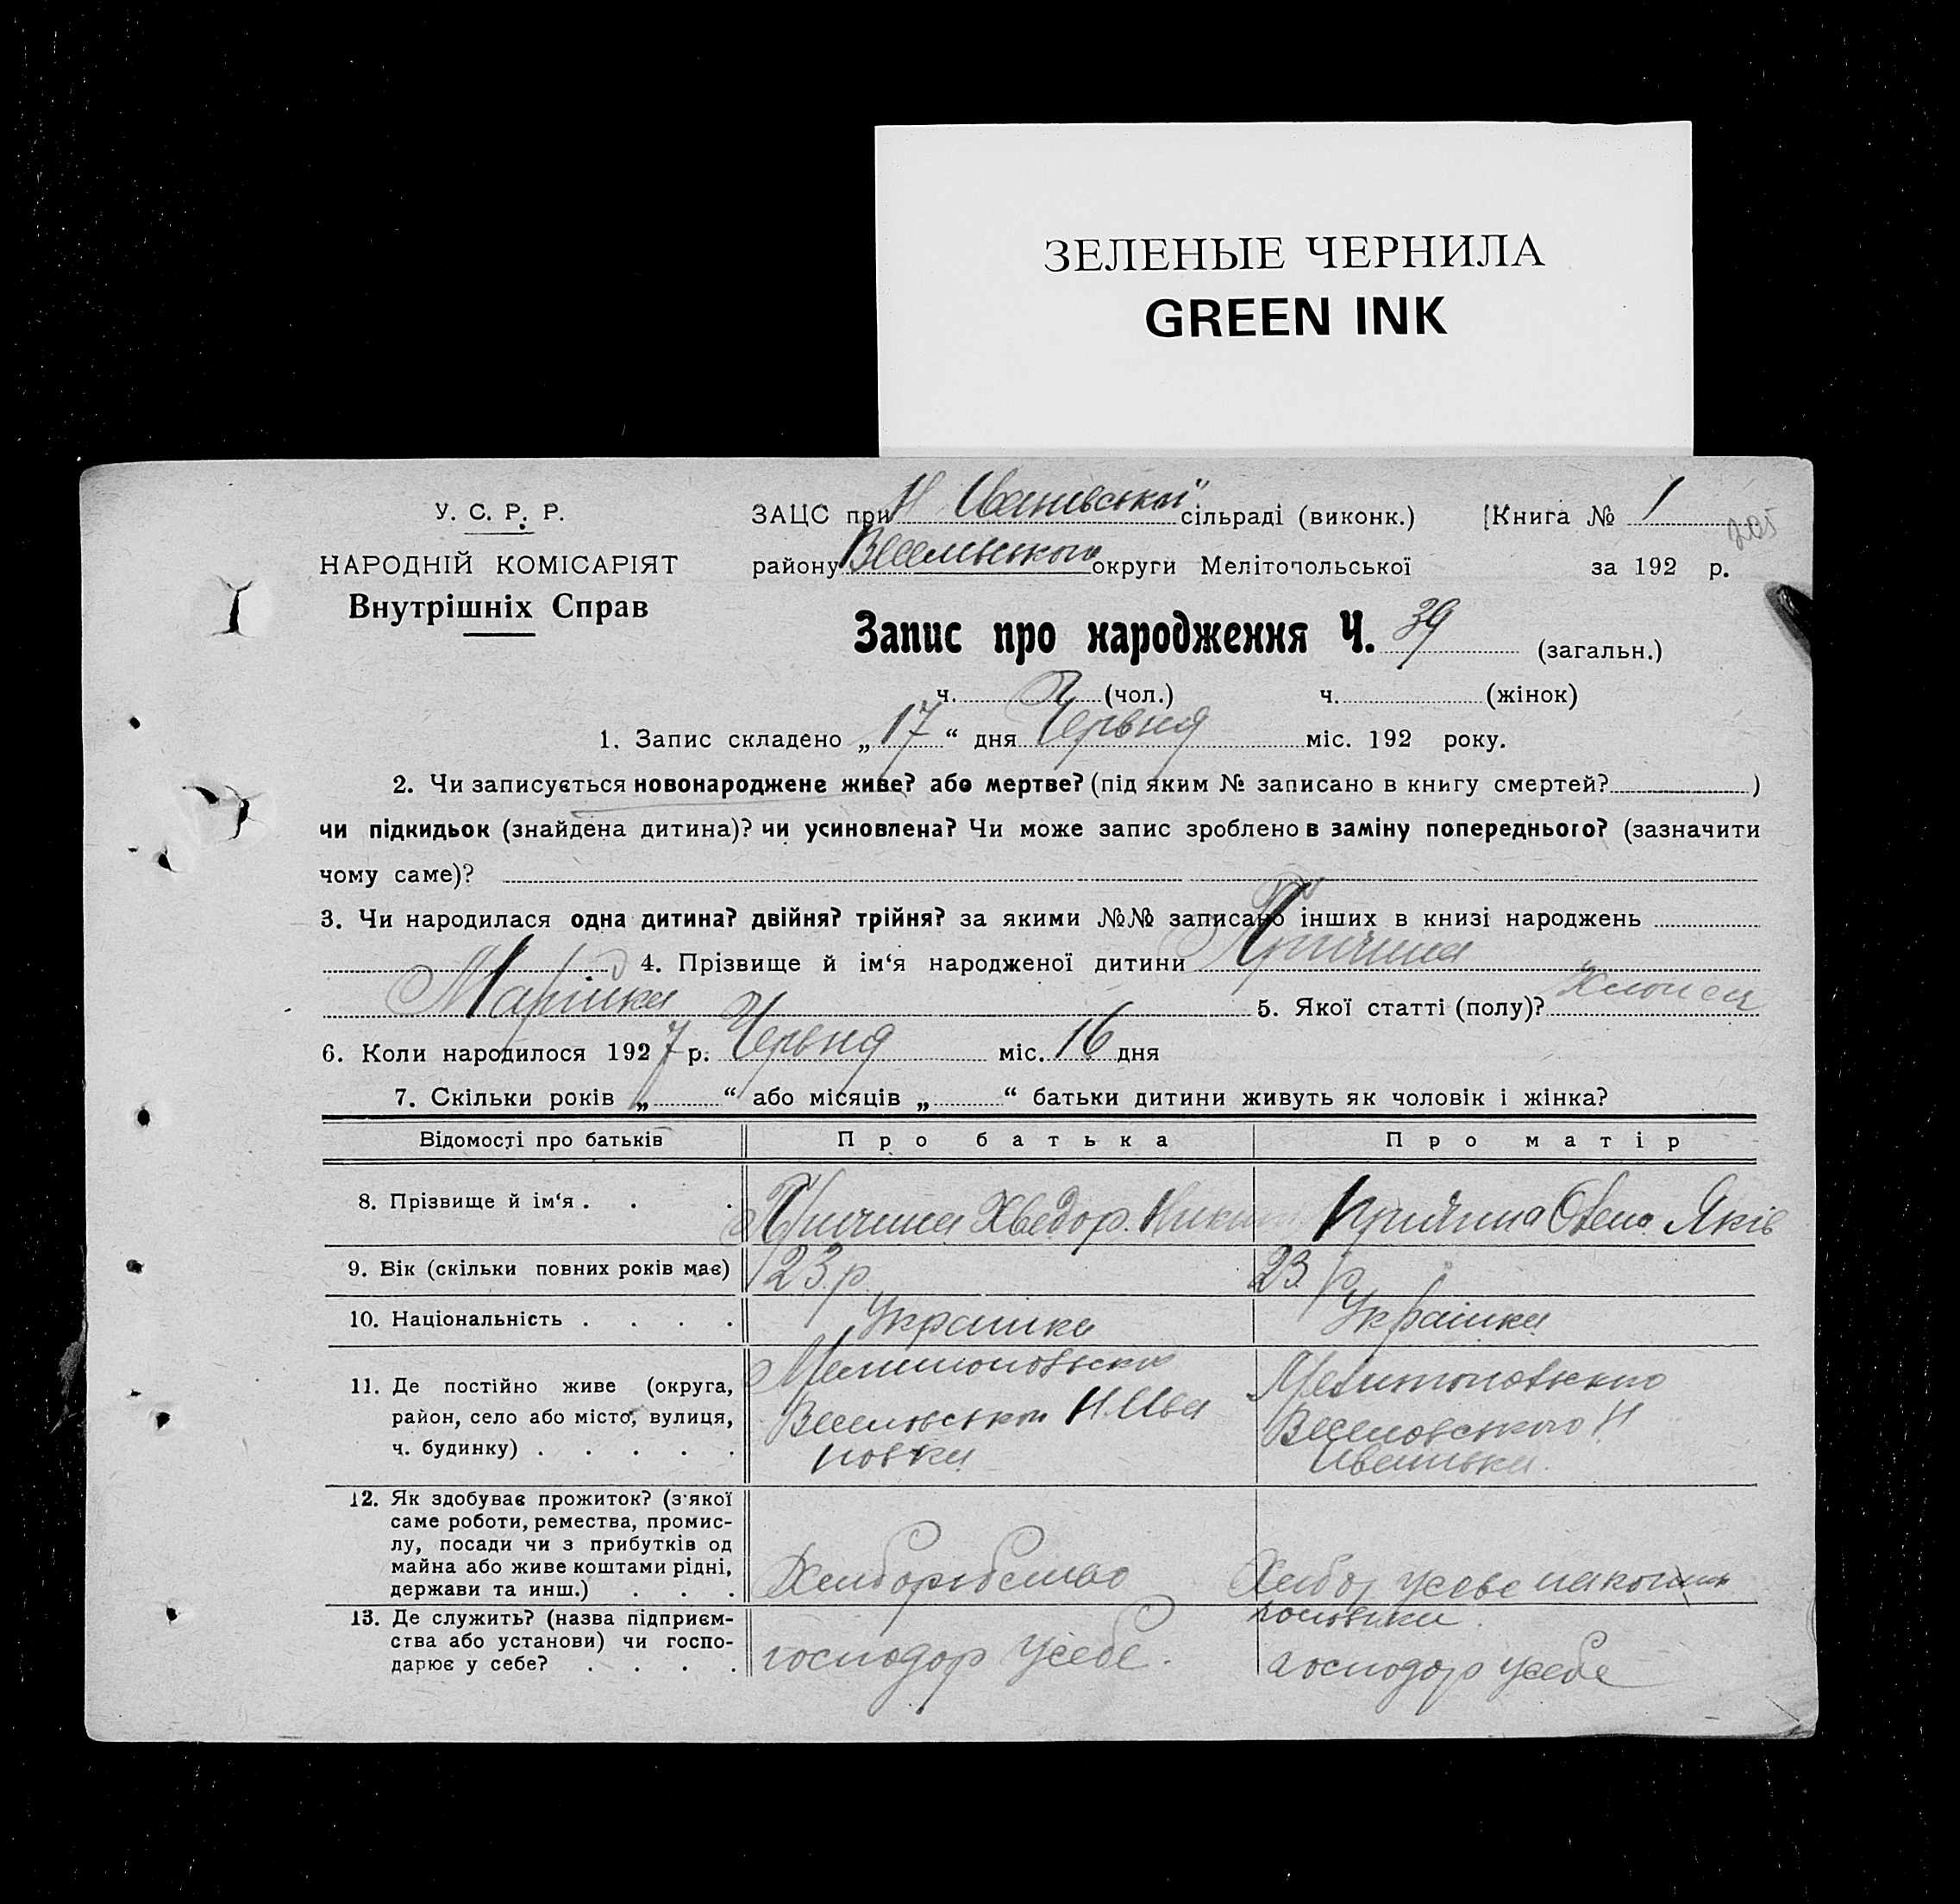 ЗЕЛЕНЫЕ ЧЕРНИЛА
GREEN INK
У. С. Р. Р.
НАРОДНІЙ КОМІСАРІЯТ
Внутрішніх Справ
ЗАЦС при Н Іванівській сільраді (виконк.) Книга № 1
205
району Веселівського округи Мелітопольської за 192 р.
Запис про народження Ч. 39 (загальн.)
ч. (чол.) ч. (жінок)
1. Запис складено „17“ дня Червня міс. 192 року.
2. Чи записується новонароджене живе? або мертве? (під яким № записано в книгу смертей? )
чи підкидьок (знайдена дитина)? чи усиновлена? Чи може запис зроблено в заміну попереднього? (зазначити
чому саме)?
3. Чи народилася одна дитина? двійня? трійня? за якими №№ записано інших в книзі народжень
4. Прізвище й ім‘я народженої дитини Причина
5. Якої статті (полу)?
6. Коли народилося 1927 р. Червня міс. 16 дня
7. Скільки років „ “ або місяців „ “ батьки дитини живуть як чоловік і жінка?
Відомості про батьків Про батька Про матір
8. Прізвище й ім‘я . . . Причина Хведор. Причина Яків
9. Вік (скільки повних років має) 23 р. 23 р.
10. Національність . . . . Українка Українка
11. Де постійно живе (округа,
район, село або місто, вулиця,
ч. будинку) . . . . .
Мелитоповско
Веселовського Н. Ива
новка
Мелитоповского
Веселовського Н
Ивановка.
12. Як здобуває прожиток? (з'якої
саме роботи, ремества, промис-
лу, посади чи з прибутків од
майна або живе коштами рідні,
держави та инш.) . . .
Хлиборобство
Хлибор усебе
13. Де служить? (назва підприєм-
ства або установи) чи госпо-
дарює у себе? . . . .
господор усебе.
господор усебе